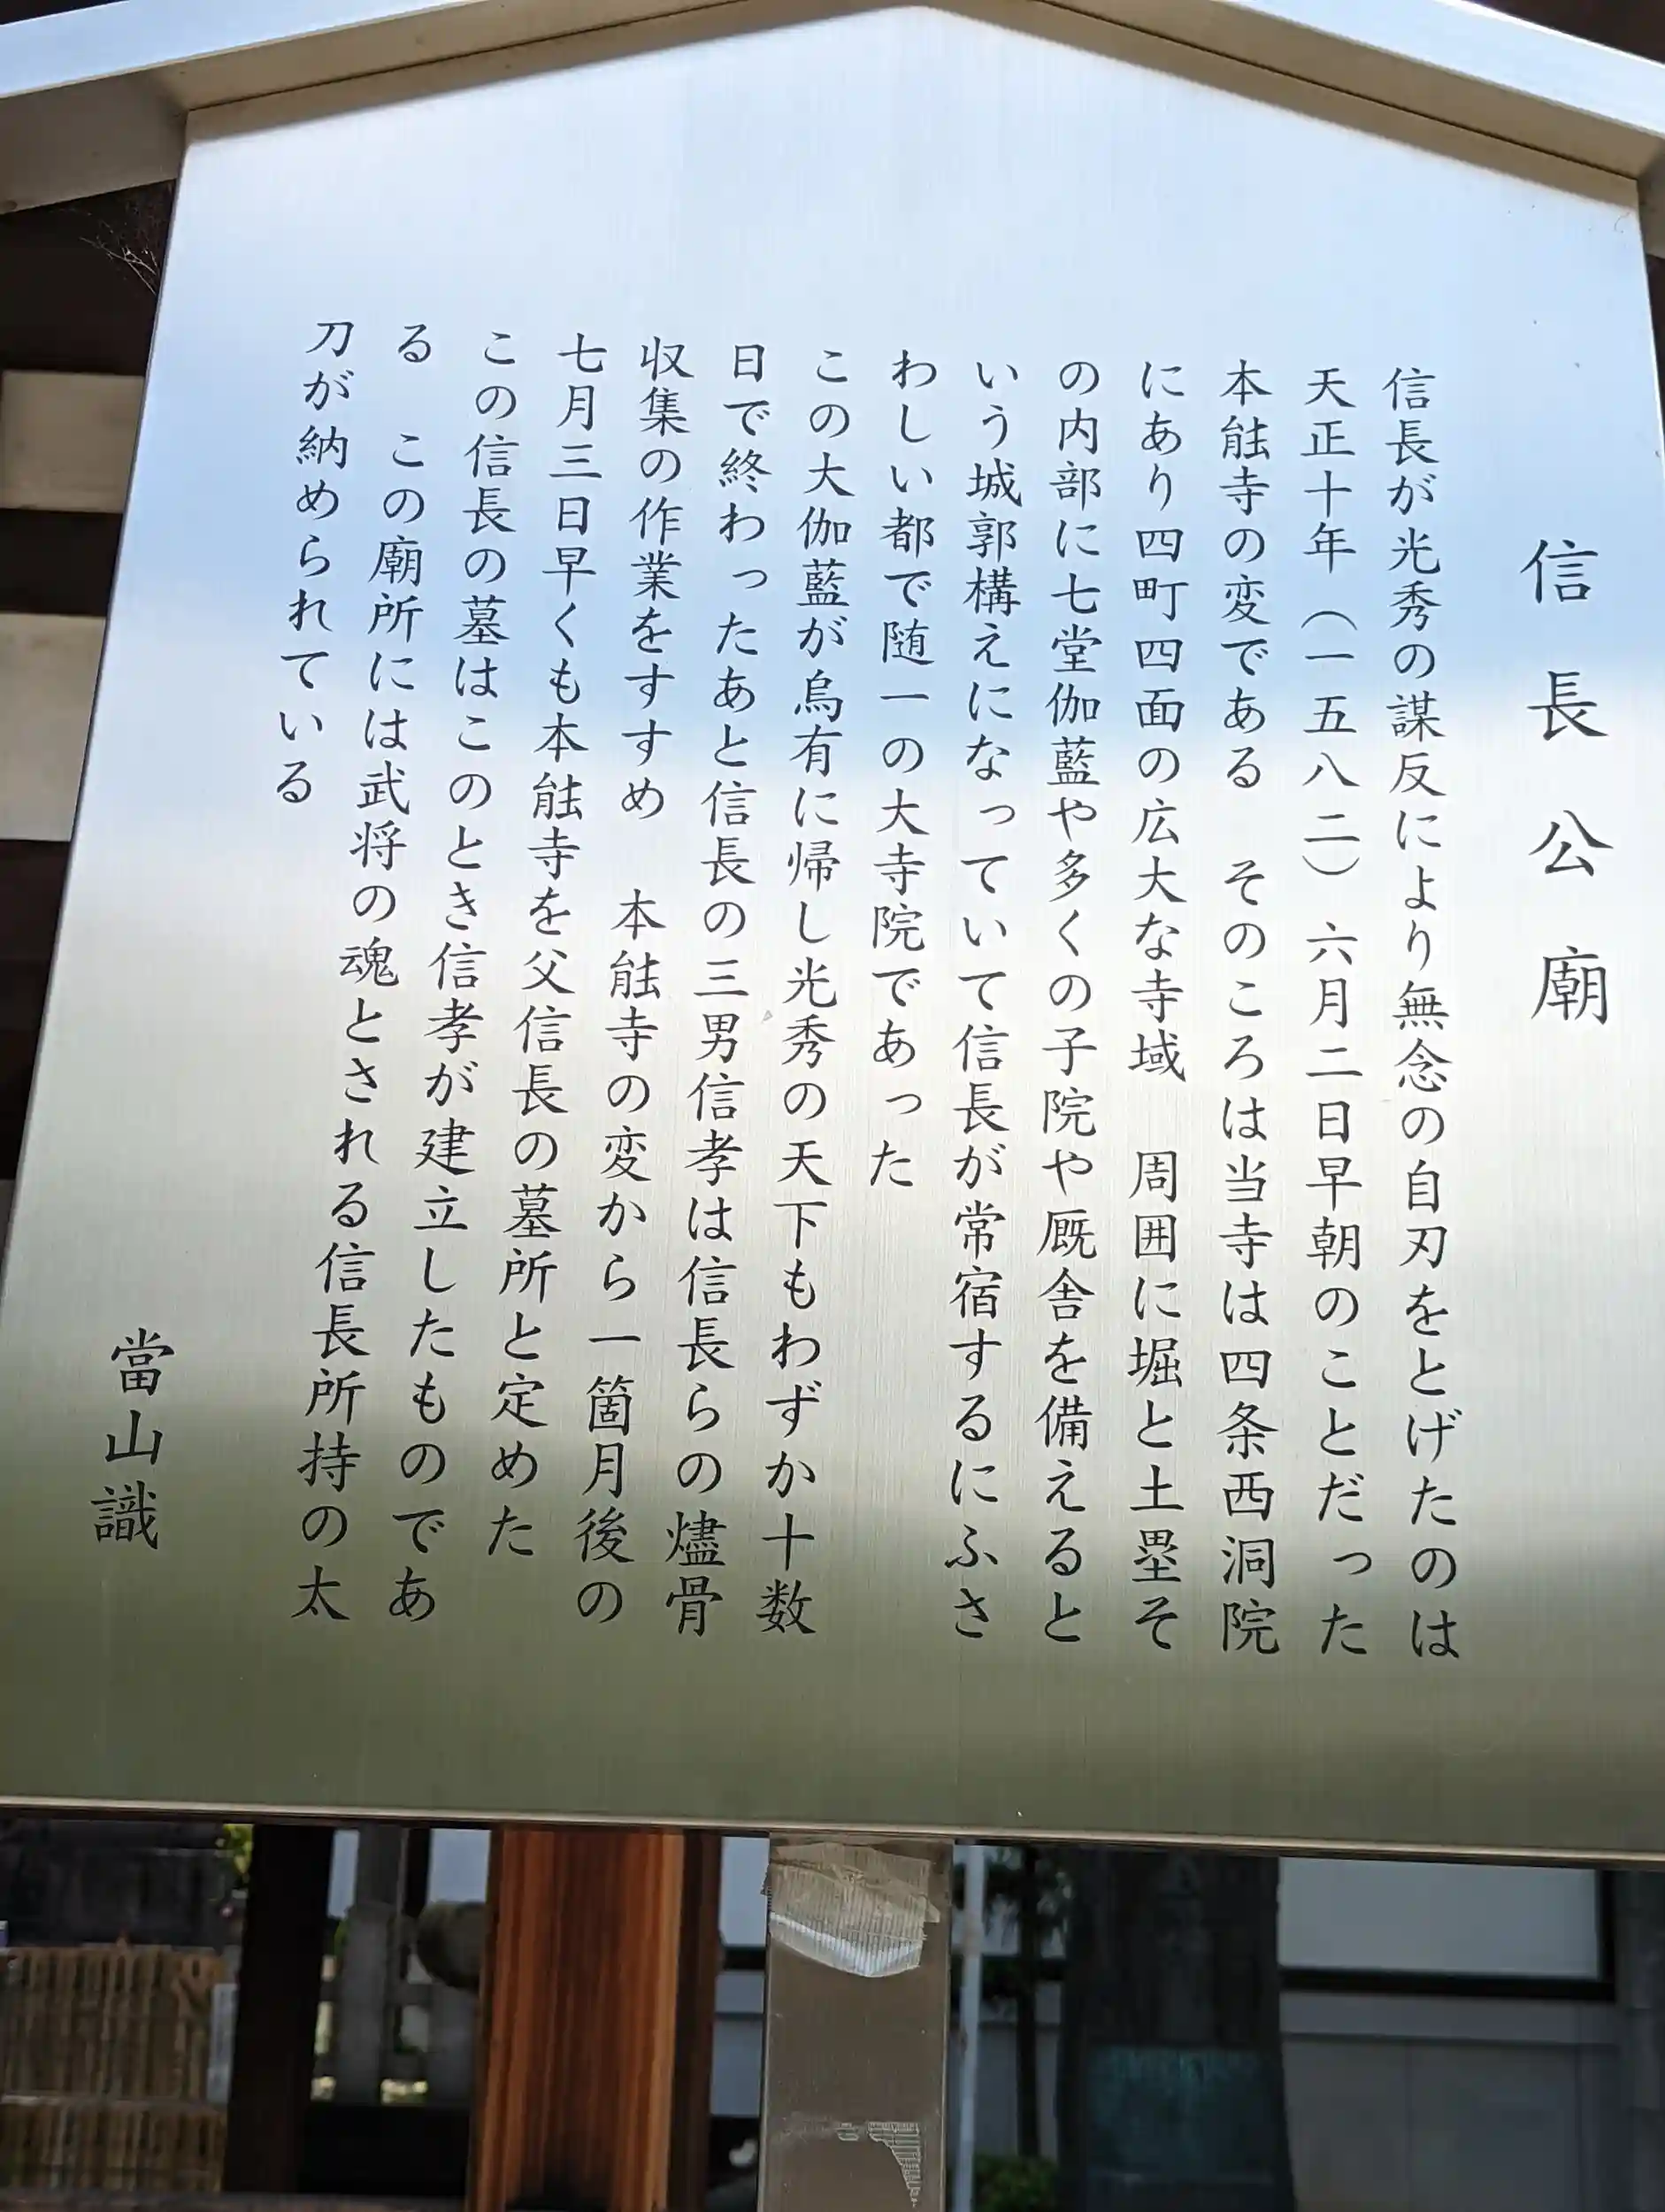 信長公廟
信長が光秀の謀反により無念の自刃をとげたのは
天正十年（一五八二）六月二日早朝のことだった
本䏻寺の変である　そのころは当寺は四条西洞院
にあり四町四面の広大な寺域　周囲に堀と土塁そ
の内部に七堂伽藍や多くの子院や厩舎を備えると
いう城郭構えになっていて信長が常宿するにふさ
わしい都で随一の大寺院であった
この大伽藍が烏有に帰し光秀の天下もわずか十数
日で終わったあと信長の三男信孝は信長らの燼骨
収集の作業をすすめ　本䏻寺の変から一箇月後の
七月三日早くも本䏻寺を父信長の墓所と定めた
この信長の墓はこのとき信孝が建立したものであ
る　この廟所には武将の魂とされる信長所持の太
刀が納められている
當山識